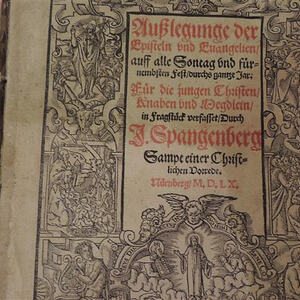 Außlegunge der
Episteln vnd Euangelien/
auff alle Sontag vnd für-
nemdsten Fest/durchs gantze Jar:
Für die jungen Christen/
Knaben vnd Megdlein/
in Fragstück verfasset/Durch
J. Spangenberg
Sampt einer Christ-
lichen Vorrede.
Nürnberg/ M. D. LX.